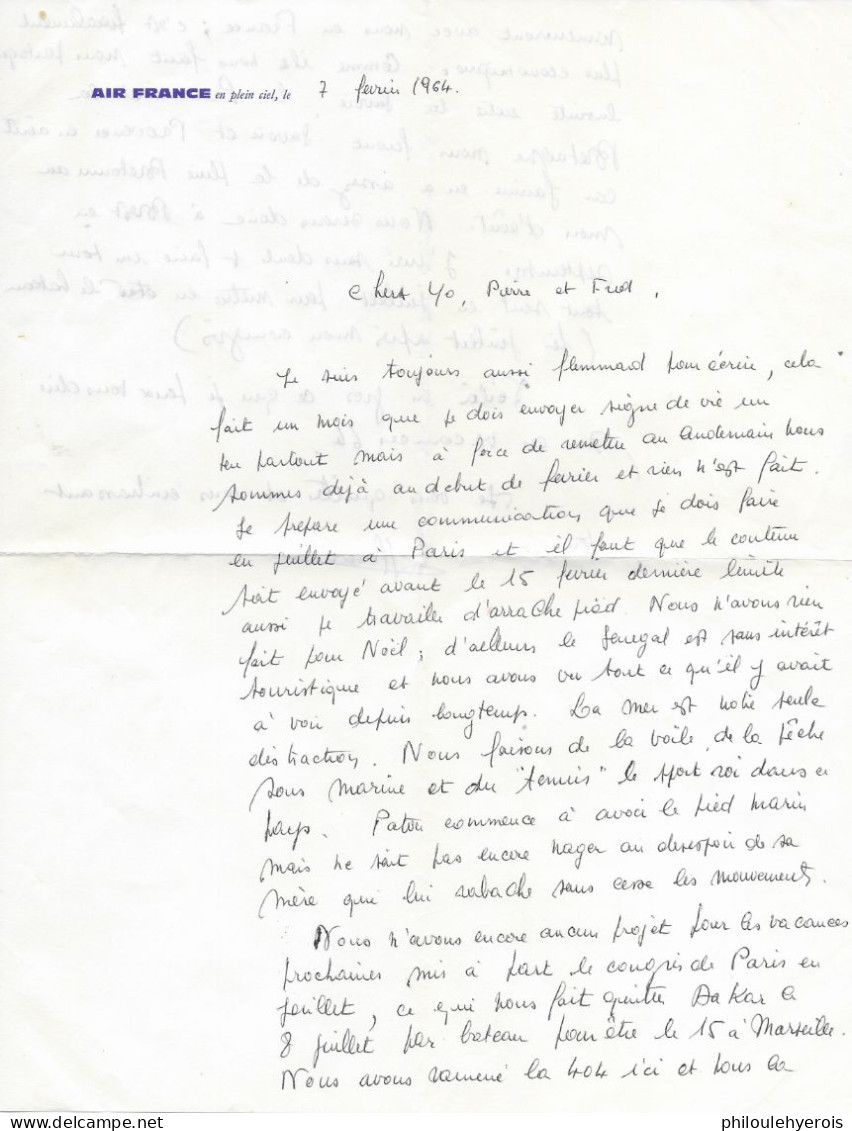 AIR FRANCE en plein ciel, le 7 fevrier 1964.
Chers Yo, Pierre et Fred,
Je suis toujours aussi flemmard pour écrire, cela
fait un mois que je dois envoyer signe de vie un
peu partout mais à force de remettre au lendemain nous
sommes déjà au debut de fevrier et rien n'est fait.
Je prepare une communication que je dois faire
en juillet à Paris et il faut que le contenu
soit envoyé avant le 15 fevrier dernière limite
aussi je travaille d'arrache pied. Nous n'avons rien
fait pour Noël ; d'ailleurs le Senegal est sans intérêt
touristique et nous avons vu tout ce qu'il y avait
à voir depuis longtemps. La mer est notre seule
distraction. Nous faisons de la voile, de la pêche
sous marine et du "tennis" le sport roi dans ce
pays. Patou commence à avoir le pied marin
mais ne sait pas encore nager au desespoir de sa
mère qui lui rabache sans cesse les mouvements.
Nous n'avons encore aucun projet pour les vacances
prochaines mis à part le congrès de Paris en
juillet, ce qui nous fait quitter Dakar le
8 juillet par bateau pour être le 15 à Marseille.
Nous avons ramené la 404 ici et nous la
philoulehyerois